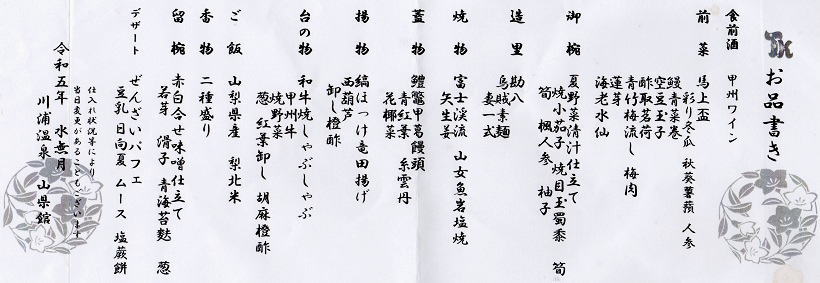 お品書き
食前酒 甲州ワイン
前菜 馬上盃
彩り冬瓜 秋葵薯蕷 人参
鰻青菜巻
空豆玉子
酢取茗荷
青竹梅流し 梅肉
蓮芋
海老水仙
御椀 夏野菜清汁仕立て
焼小茄子 焼目玉蜀黍 筍
筍 楓人参 柚子
造里 勘八
烏賊素麺
妻一式
焼物 富士渓流 山女魚岩塩焼
矢生姜
蓋物 鱧鼈甲葛饅頭
青紅葉 糸雲丹
花椰菜
揚物 縞ほっけ竜田揚げ
西葫芦
卸し橙酢
台の物 和牛焼しゃぶしゃぶ
甲州牛
焼野菜
葱 紅葉卸し 胡麻橙酢
ご飯 山梨県産 梨北米
香物 二種盛り
留椀 赤白合せ味噌仕立て
若芽 滑子 青海苔麩 葱
デザート ぜんざいパフェ
豆乳 日向夏 ムース 塩蕨餅
仕入れ状況等により
当日変更があることもございます
令和五年 水無月
川浦温泉 山県館